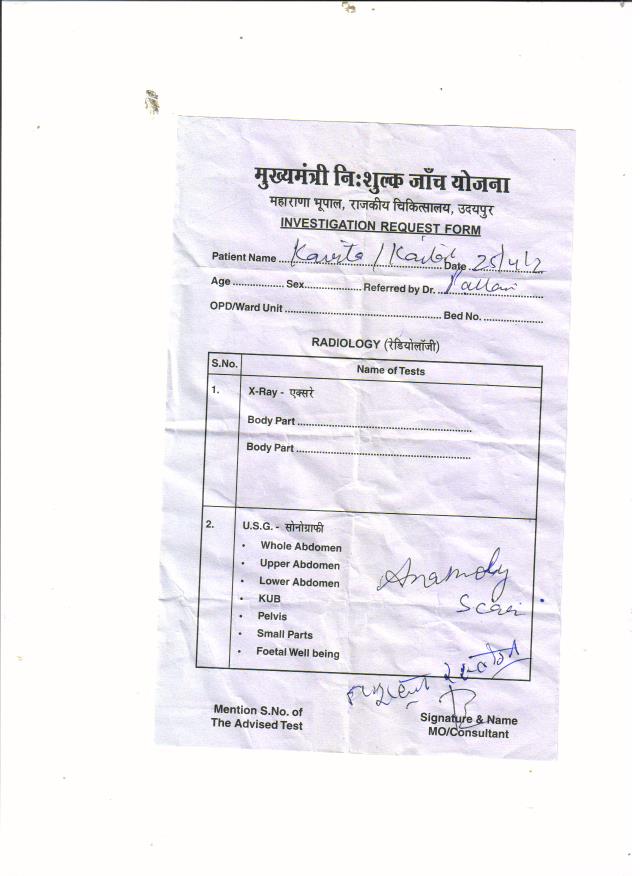 मुख्यमंत्री निःशुल्क जाँच योजना
महाराणा भूपाल, राजकीय चिकित्सालय, उदयपुर
INVESTIGATION REQUEST FORM
Patient Name Kavita / Date 25/4/2
Age Sex Referred by Dr. Pallavi
OPD/Ward Unit Bed No.
RADIOLOGY (रेडियोलॉजी)
S.No. Name of Tests
1. X-Ray - एक्सरे
Body Part
Body Part
2. U.S.G. - सोनोग्राफी
• Whole Abdomen
• Upper Abdomen
• Lower Abdomen
• KUB
• Pelvis
• Small Parts
• Foetal Well being
Anamoly
Scan
Mention S.No. of
The Advised Test
Signature & Name
MO/Consultant